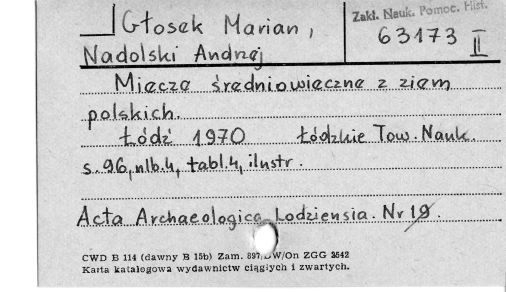 Głosek Marian,
Zakł. Nauk. Pomoc. Hist.
63173 II
Nadolski Andrzej
Miecze średniowieczne z ziem
polskich.
Łódź 1970 Łódzkie Tow. Nauk.
s. 96, nlb. 4, tabl. 4, ilustr.
Acta Archaeologica Lodziensia. Nr 19.
CWD B 114 (dawny B 15b) Zam. 897/DW/On ZGG 3542
Karta katalogowa wydawnictw ciągłych i zwartych.